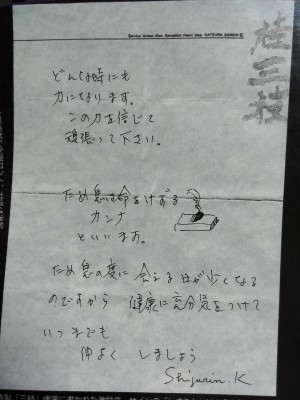 桂三枝
どんな時にも
力になります。
この力を信じて
頑張って下さい。
ため息は命をけずる
カンナ
といいます。
ため息の度に 会える日が少くなる
のですから 健康に充分気をつけて
いつまでも
仲よく しましょう